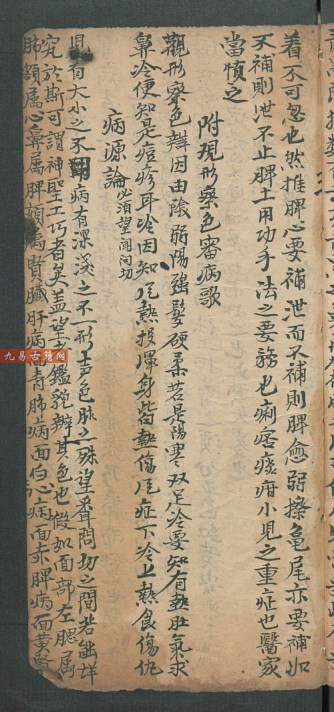 着不可忽也然推脾心要補泄而不補則脾愈弱擦龜尾亦要補如
不補則泄不止脾土用功手法之要務也痢痞痰疳小兒之重症也醫家
當慎之
附現形察色審病歌
觀形察色辨因由陰弱陽強髮硬柔若是傷寒双足冷要知有熱肚氣求
鼻冷便知是痘疹耳冷因知風熱投渾身皆熱傷風症下冷上熱食傷仇
病源論必須望聞問切
兒有大小之不病有深淺之不一形声色脉之殊望聞問切之間若能詳
究於斯可謂神聖工巧者矣盖望者鑑貌辨其色也假如面部左腮属
肺額属心鼻属脾頦為腎臟肝病面青肺病面白心病面赤脾病面黄腎
九易古籍网